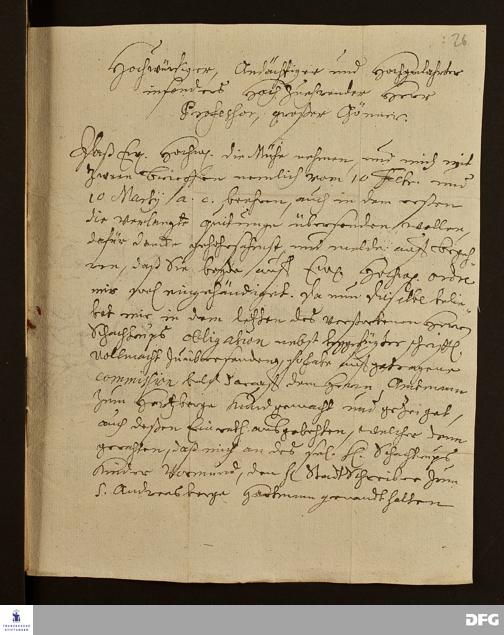 : 26
Hochwürdiger, Andächtiger und Hochgelahrter
insonders Hoch Zuehrender Herr
Professor, großer Gönner.
Daß Ew. Hochw. die Mühe nehmen, und mich mit
Zween Brieffen nemlich vom 10 Febr. und
10 Martij a. c. beehren, auch in dem ersten
die verlangte quitunge übersenden wollen,
dafür dancke gehorsahmst, und melde
daß Sie beyde auff Ew. Hochw. ordre
mir wohl eingehändiget. Da nun dieselbe belie-
bet mir in dem letzten des verstorbenen Herrn
Schachtrups Obligation nebst beygefügter schrifftl.
Vollmacht zu übersenden, so habe auffgetragene
commission dem Herrn Amtmann
zum Hertzberge kund gemacht und gezeiget,
auch deßen Einrath ausgebehten, welcher dann
gerathen, daß mich an des sel. H. Schachtrups
Kinder Vormund, den H. Stadt Schreiber zum
S. Andreasberge Hartmann gewandt halten
FRANCKESCHE
STIFTUNGEN
DFG